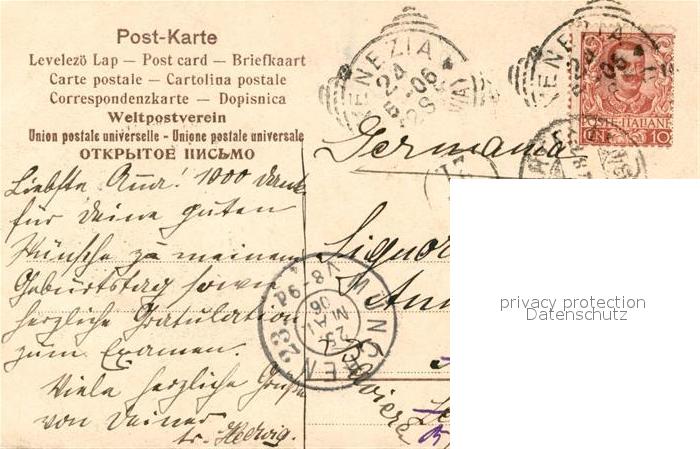 Post-Karte
Levelezö Lap — Post card — Briefkaart
Carte postale — Cartolina postale
Correspondenzkarte — Dopisnica
Weltpostverein
Union postale universelle - Unione postale universale
ОТКРЫТОЕ ПИСЬМО
VENEZIA
24
5-06
VENEZIA
24
POSTE ITALIANE
CENT 10
Germania
Liebste Anna! 1000 Dank
für Deine guten
Wünsche zu meinem
Geburtstag sowie
herzliche Gratulation
zum Examen.
Viele herzliche Grüße
von Deiner
Hedwig.
Signor
MÜNCHEN 23.
V8-9
25
MAI
06
Baviera
privacy protection
Datenschutz